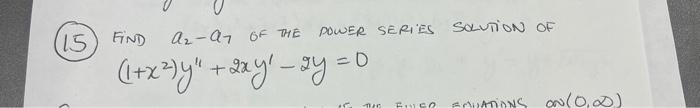 (15) FIND a₂-a₇ OF THE POWER SERIES SOLUTION OF
(1+x²)y" + 2xy' - 2y = 0
EQUATIONS ON (0,∞)